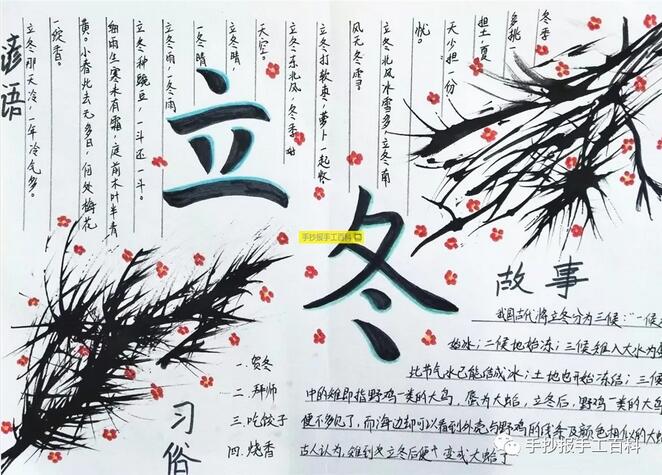 冬季
多挑一
担土，夏
天少担一份
忧。
立冬北风冰雪多，立冬南
风无冬雪。
立冬打软枣，萝卜一起收
立冬东北风，冬季好
天空。
立冬晴，
一冬晴
立冬雨，一冬雨
立冬种豌豆，一斗还一斗。
细雨生寒未有霜，庭前木叶半青
黄。小春此去无多日，何处梅花
一绽香。
立冬那天冷，一年冷气多。
谚语
立冬
手抄报手工百科
故事
我国古代将立冬分为三候：“一候
始冰；二候地始冻；三候雉入大水为
此节气水已能结成冰；土地也开始冻结；三候
中的雉即指野鸡一类的大鸟，蜃为大蛤，立冬后，野鸡一类的大鸟
便不多见了，而海边却可以看到外壳与野鸡的线条及颜色相似的大
古人认为，雉到立冬后便变成大蛤了
一.贺冬
二.拜师
三.吃饺子
四.烧香
习俗
手抄报手工百科